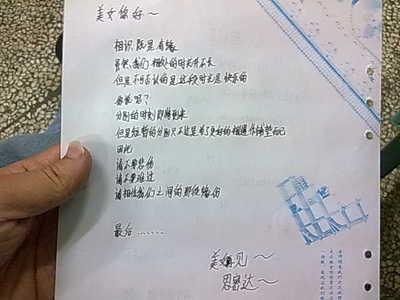 美女你好～
相识既是有缘
虽然我们相处的时光不长
但是不可否认的是这段时光是快乐的
分别的时刻即将到来
但是短暂的分别只不过是为了更好的相遇作铺垫而已
因此
请不要悲伤
请不要难过
请相信我们之间的那段缘份
最后……
美女再见～
思密达～